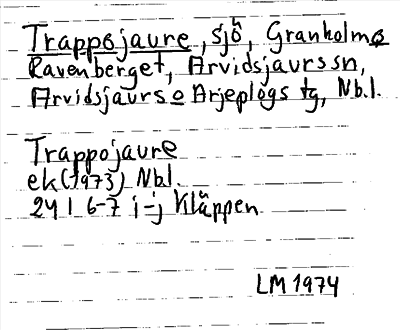 Trappojaure, sjö, Granholmo
Ravenberget, Arvidsjaurssn,
Arvidsjaurs o Arjeplogs tg, Nb.l.
Trappojaure
ek (1973) Nbl.
24 I 6-7 i-j Kläppen
LM 1974